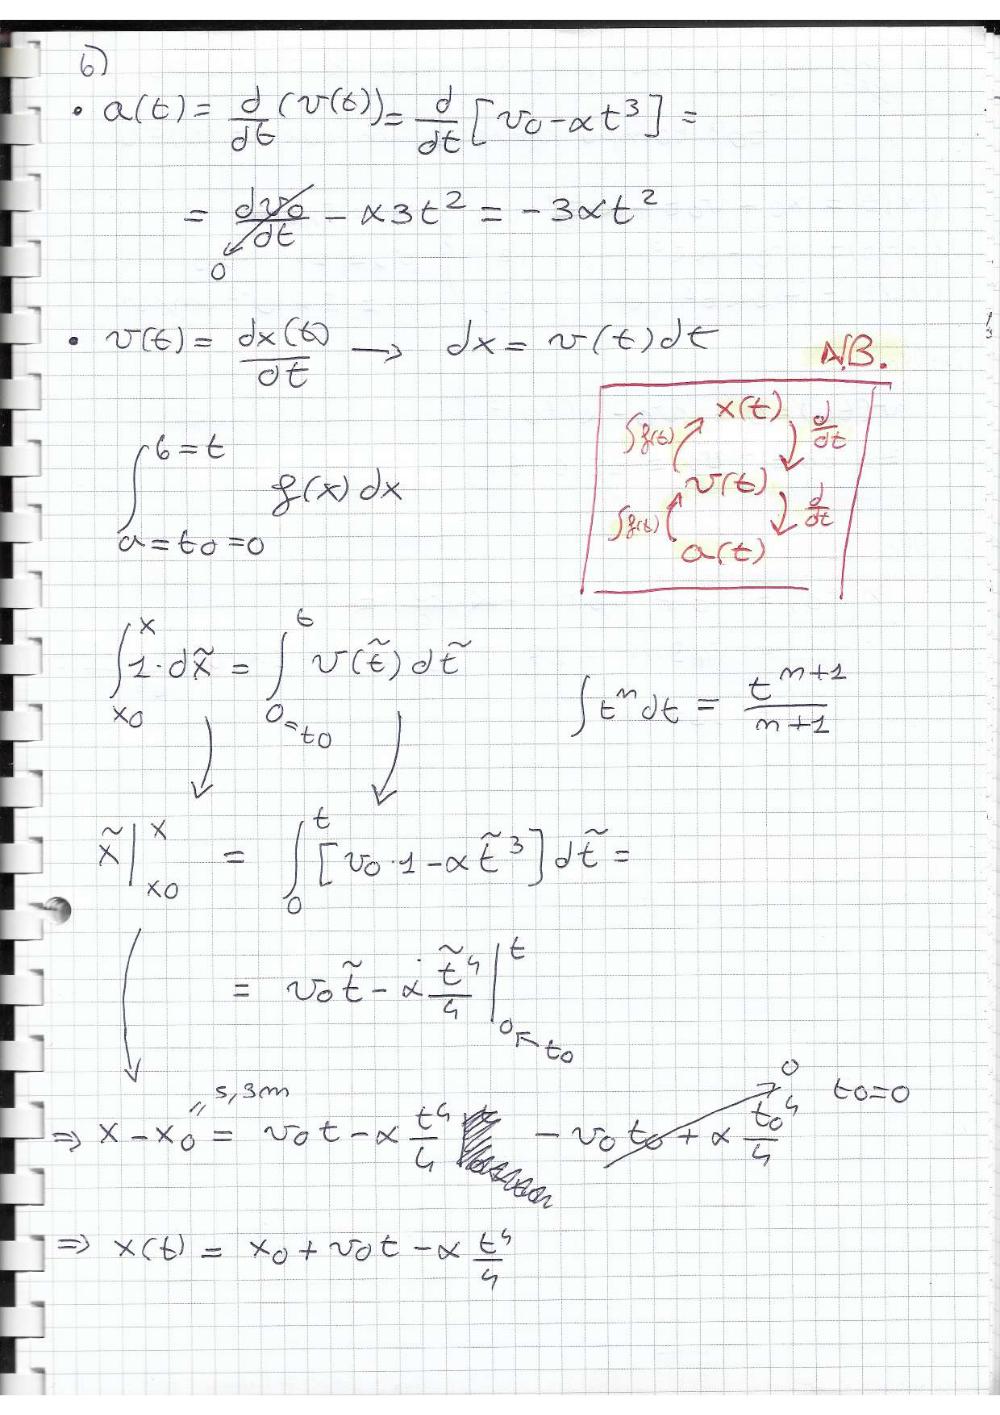 6)
• a(t) = d/dt (v(t)) = d/dt [v0 - αt³] =
= dv0/dt - α3t² = -3αt²
0
• v(t) = dx(t)/dt → dx = v(t)dt
N.B.
x(t)
∫f(t) d/dt
v(t)
∫f(t) d/dt
a(t)
∫ b=t a=t0=0 f(x)dx
∫ x x0 1·dx̃ = ∫ t 0=t0 v(t̃)dt̃
∫tⁿdt = tⁿ⁺¹/n+1
x̃ | x x0 = ∫ t 0 [v0·1 - αt̃³]dt̃ =
= v0t̃ - α t̃⁴/4 | t 0 t0
5,3m 0 t0=0
⇒ x - x0 = v0t - α t⁴/4 - v0t0 + α t0⁴/4
⇒ x(t) = x0 + v0t - α t⁴/4